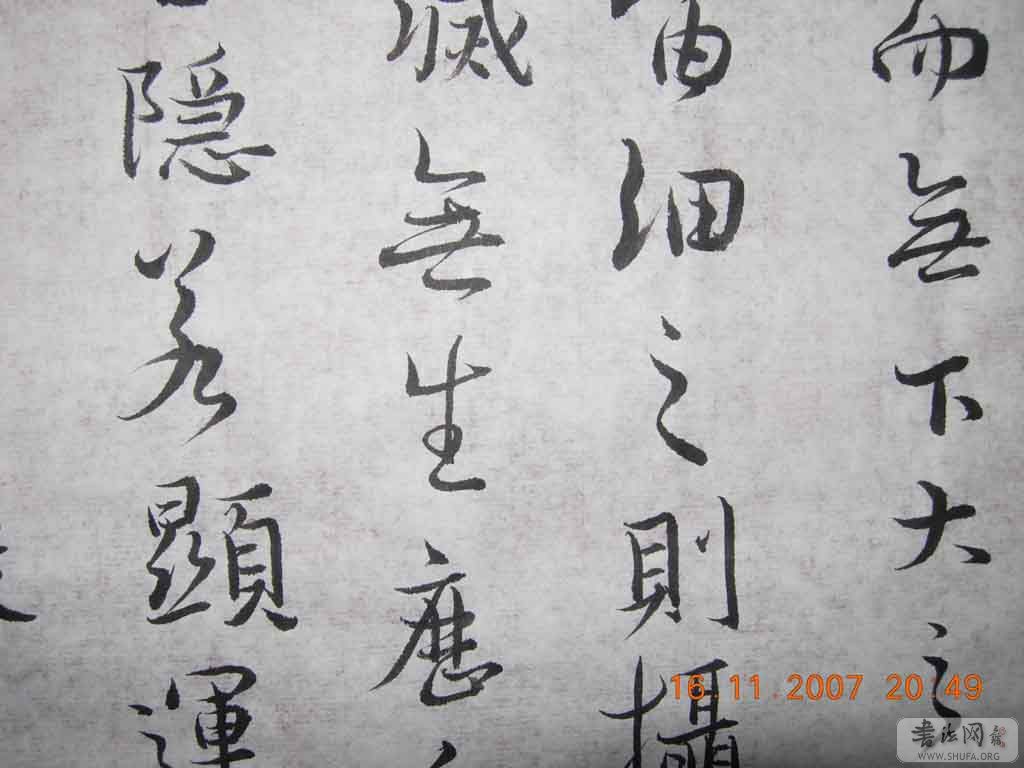 而無下大之
宙細之則攝
滅無生歷
隱若顯運
16.11.2007 20:49
書法网
WWW.SHUFA.ORG